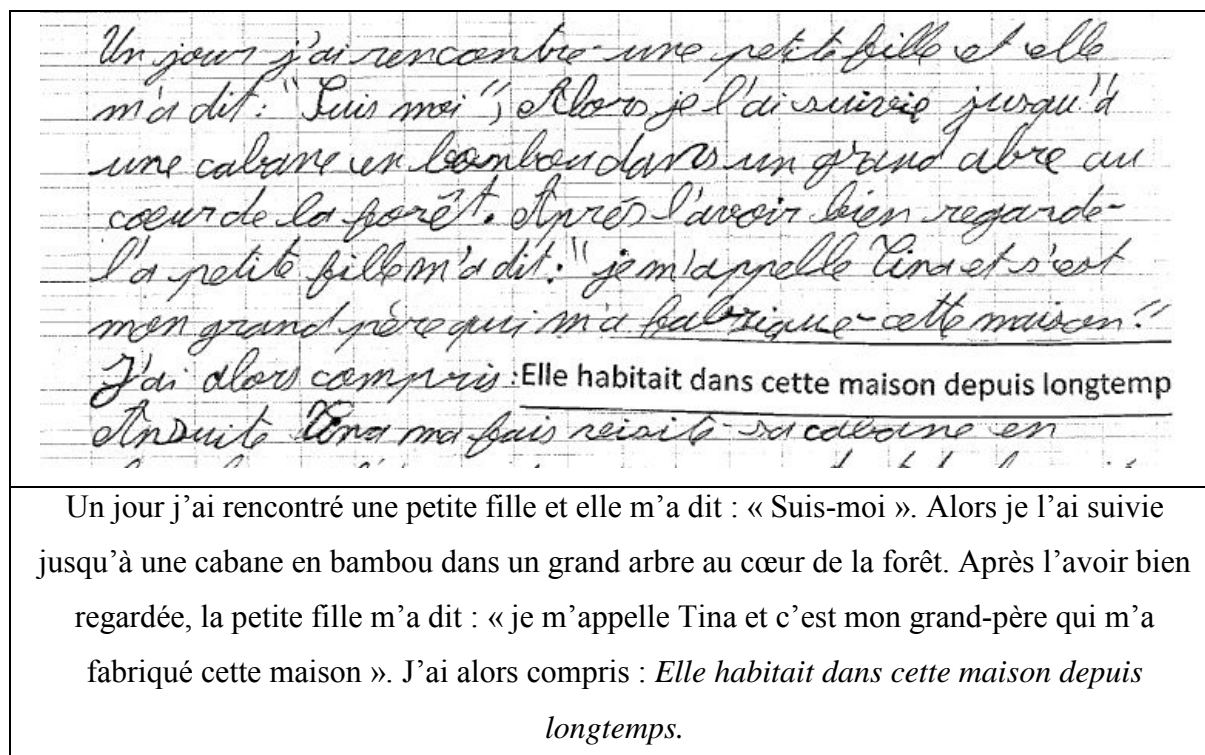 Un jour j'ai rencontré une petite fille et elle
m'a dit : "Suis moi", Alors je l'ai suivie jusqu'à
une cabane en bonbou dans un grand abre au
cœur de la forêt. Aprés l'avoir bien regardé
l'a petite fille m'a dit : "je m'appelle Tina et s'est
mon grand père qui m'a fabriqué cette maison."
J'ai alors compris : Elle habitait dans cette maison depuis longtemp
Ansuite Tina ma fais visité sa cabane en
Un jour j'ai rencontré une petite fille et elle m'a dit : « Suis-moi ». Alors je l'ai suivie
jusqu'à une cabane en bambou dans un grand arbre au cœur de la forêt. Après l'avoir bien
regardée, la petite fille m'a dit : « je m'appelle Tina et c'est mon grand-père qui m'a
fabriqué cette maison ». J'ai alors compris : Elle habitait dans cette maison depuis
longtemps.